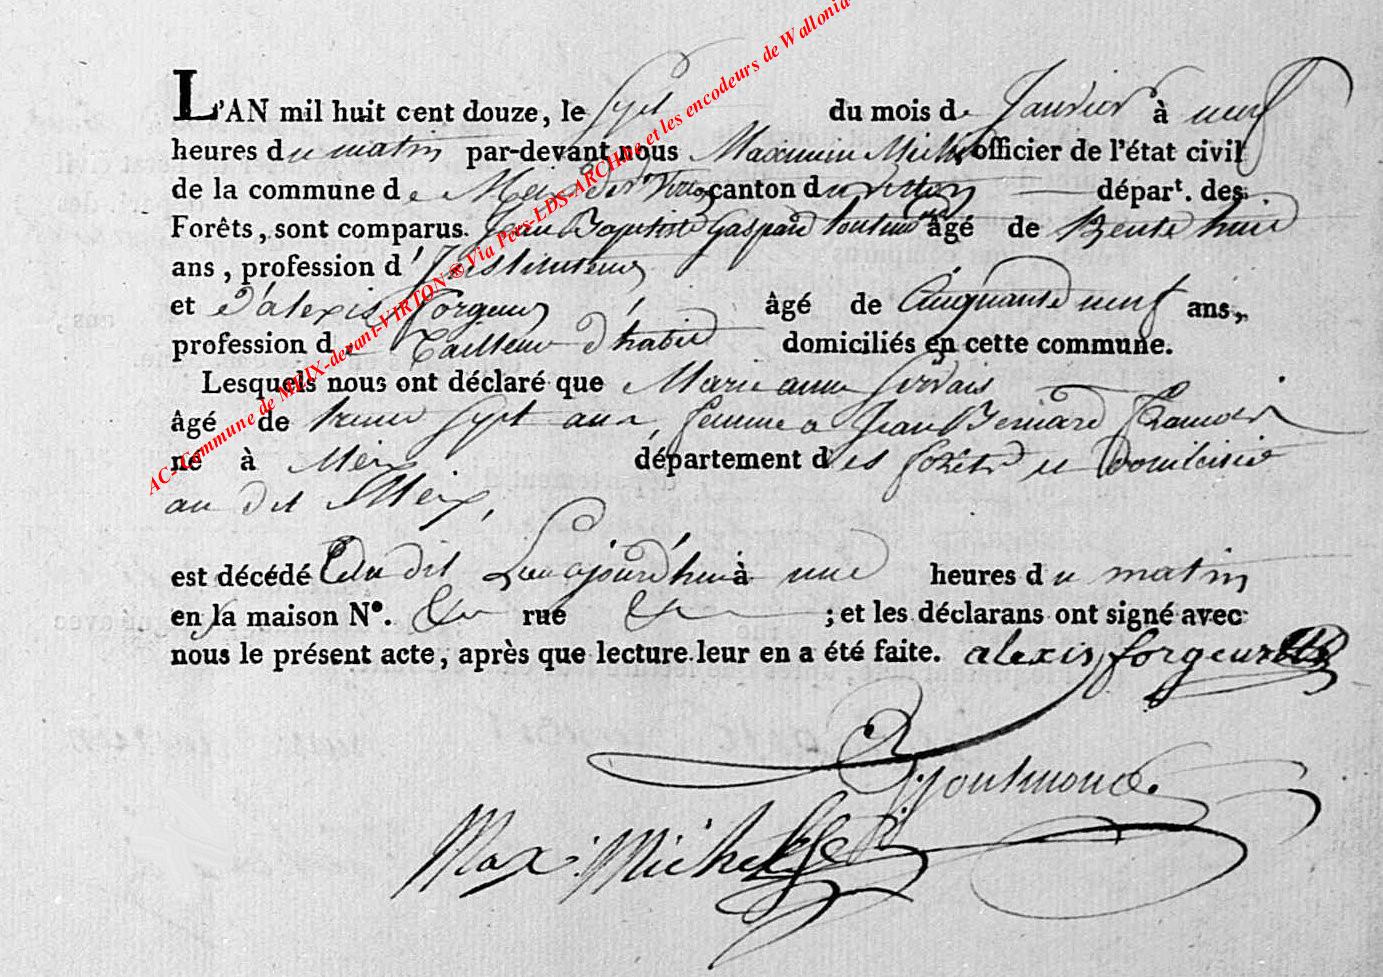 L'AN mil huit cent douze, le Sept du mois de Janvier à neuf
heures du matin par-devant nous Maximin Michel officier de l'état civil
de la commune de Meix devt Virton canton du virton départ. des
Forêts, sont comparus Jean Baptiste Gaspard toutmond âgé de trente huit
ans, profession d'Instituteur
et d'alexis forgeur âgé de Cinquante neuf ans,
profession de Tailleur d'habit domiciliés en cette commune.
Lesquels nous ont déclaré que Marie anne Gervais
âgé de trente Sept ans, femme a Jean Bernard
né à Meix département des forêts et Domiciliée
au dit Meix,
est décédé audit Lieu ajourd'huià une heures du matin
en la maison N°. rue ; et les déclarans ont signé avec
nous le présent acte, après que lecture leur en a été faite. alexis forgeur
toutmond.
Max: Michel
AC- Commune de MEIX-devant-VIRTON ® Via Pers-LDS-ARCHive et les encodeurs de Wallonia